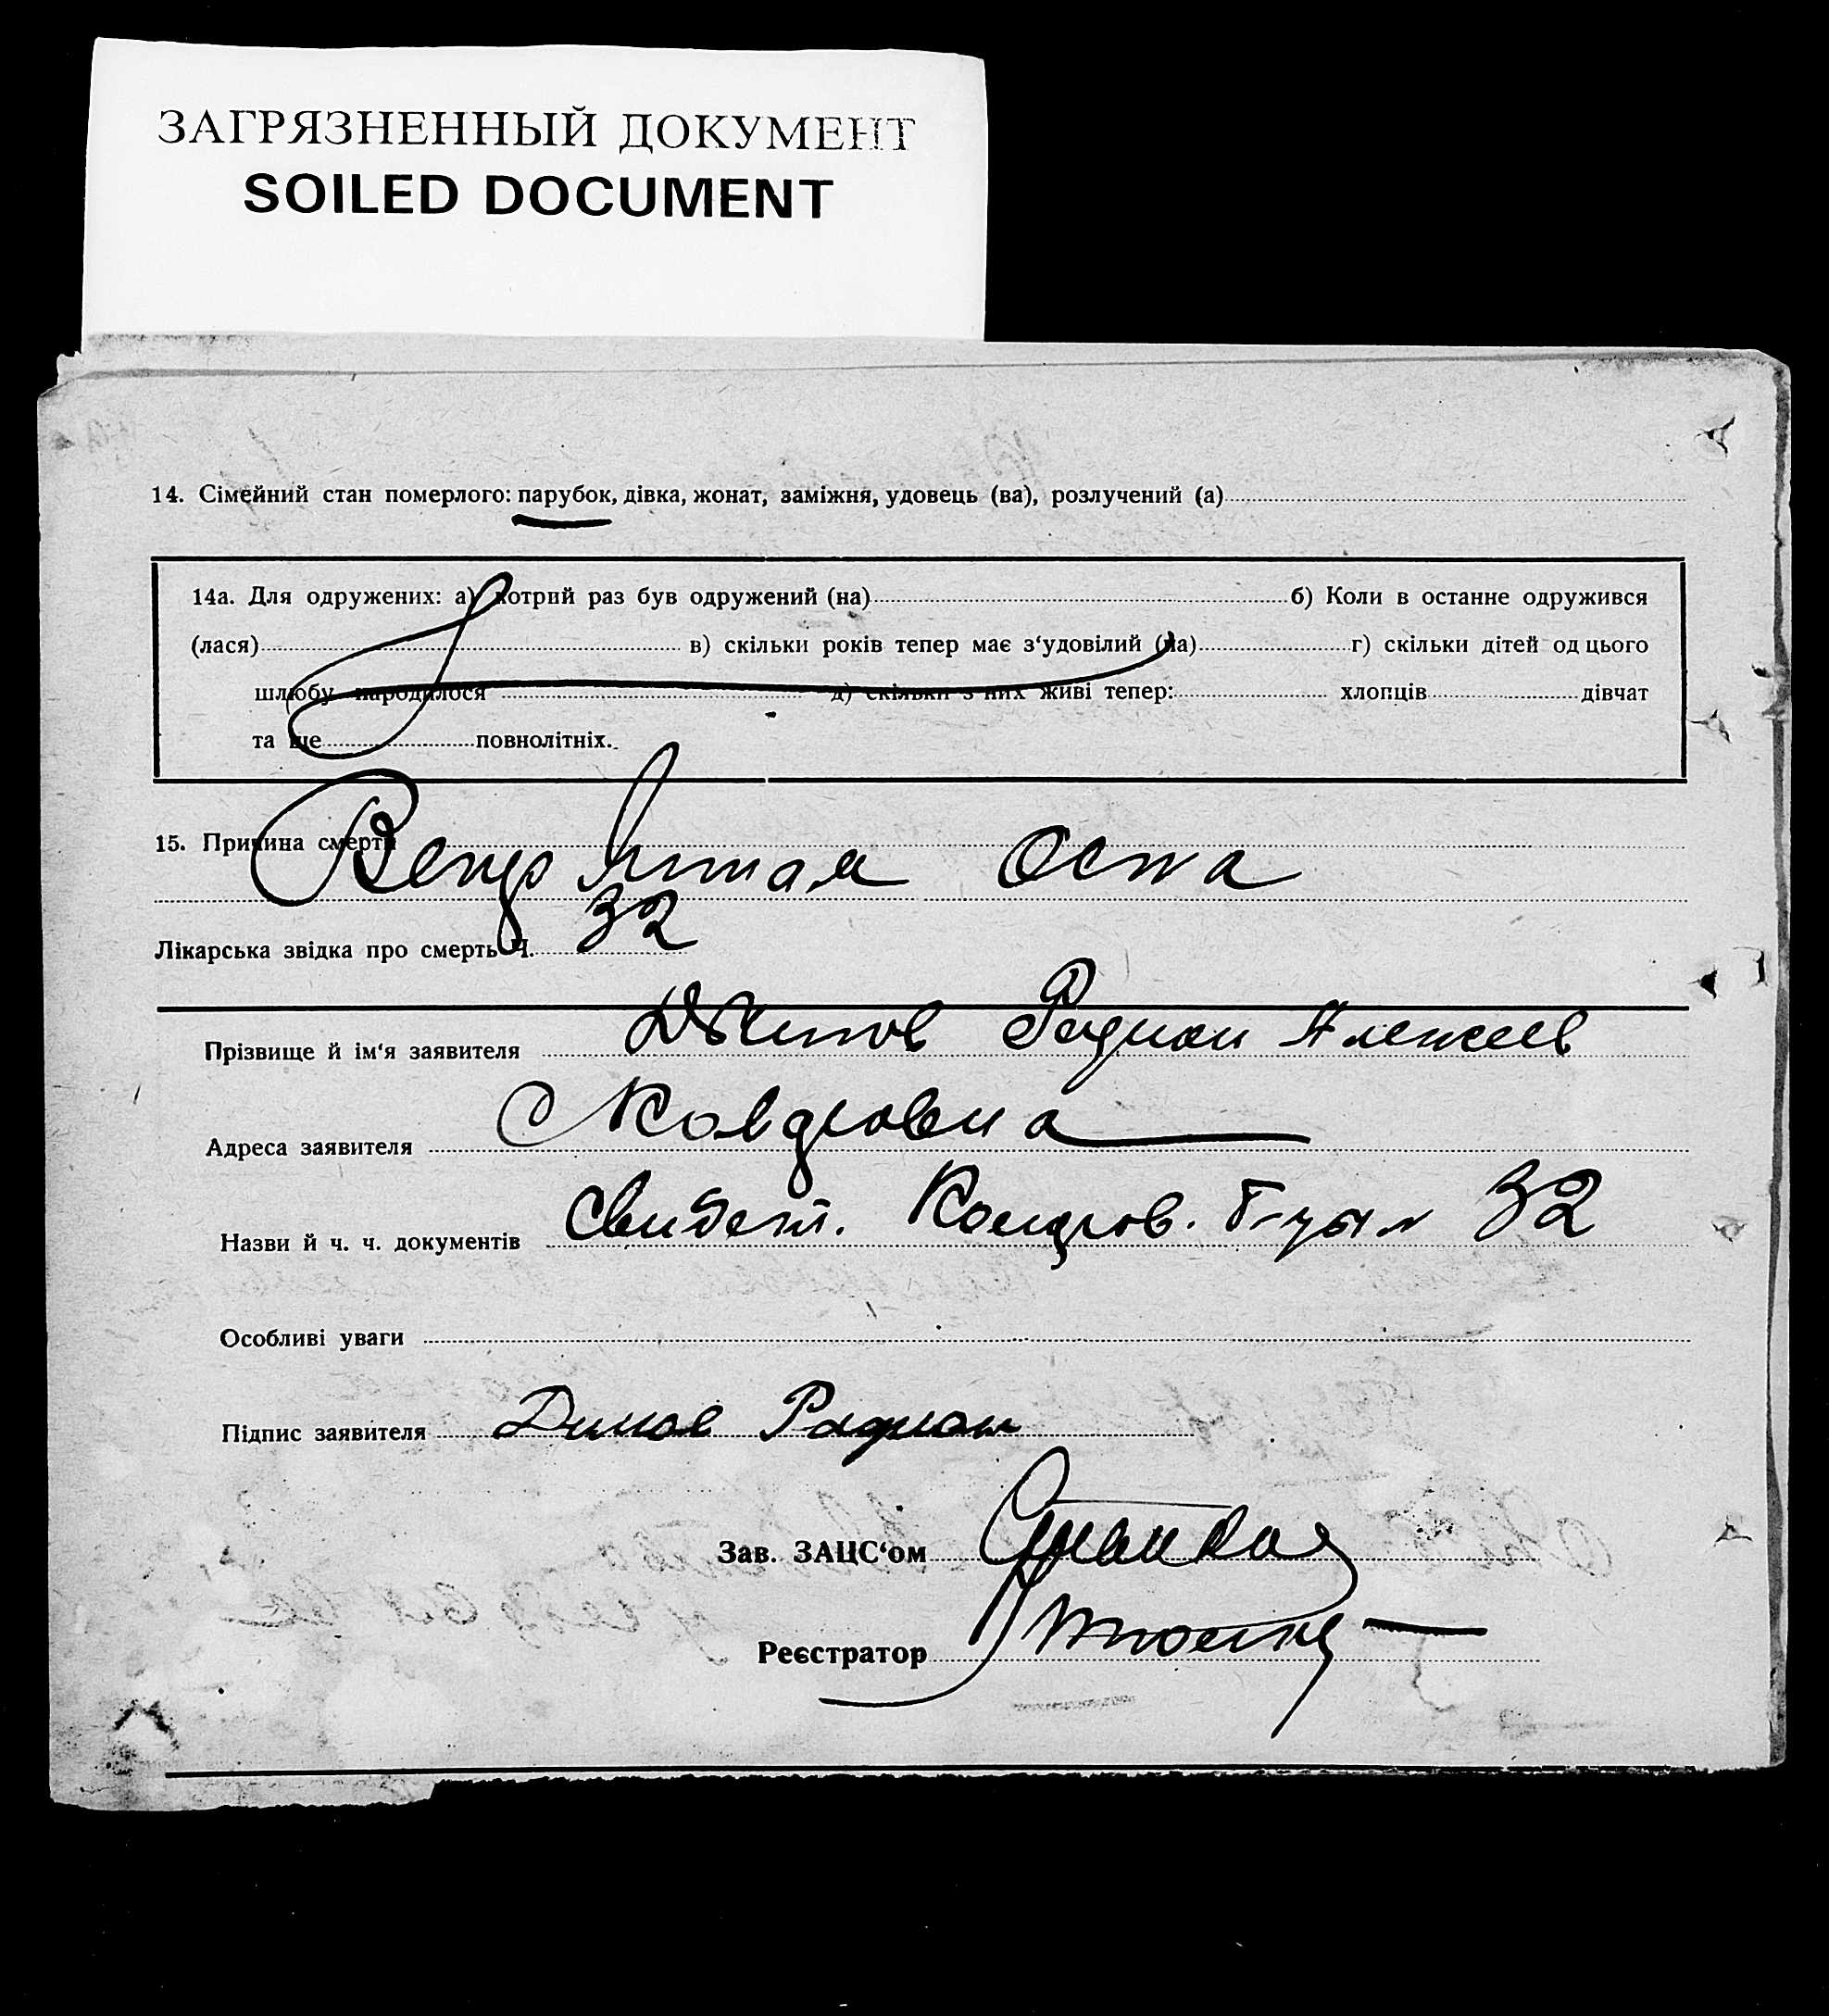 ЗАГРЯЗНЕННЫЙ ДОКУМЕНТ
SOILED DOCUMENT
14. Сімейний стан померлого: парубок, дівка, жонат, заміжня, удовець (ва), розлучений (а)
14а. Для одружених: а) котрий раз був одружений (на) б) Коли в останне одружився
(лася) в) скільки років тепер має з‘удовілий (ла) г) скільки дітей од цього
шлюбу народилося д) скільки з них живі тепер: хлопців дівчат
та ще повнолітніх.
15. Причина смерти
оспа
Лікарська звідка про смерть Ч. 32
Прізвище й ім‘я заявителя Родион Алексеев
Адреса заявителя
Назви й ч. ч. документів Свидет. 32
Особливі уваги
Підпис заявителя Димов Радион
Зав. ЗАЦС‘ом
Реєстратор